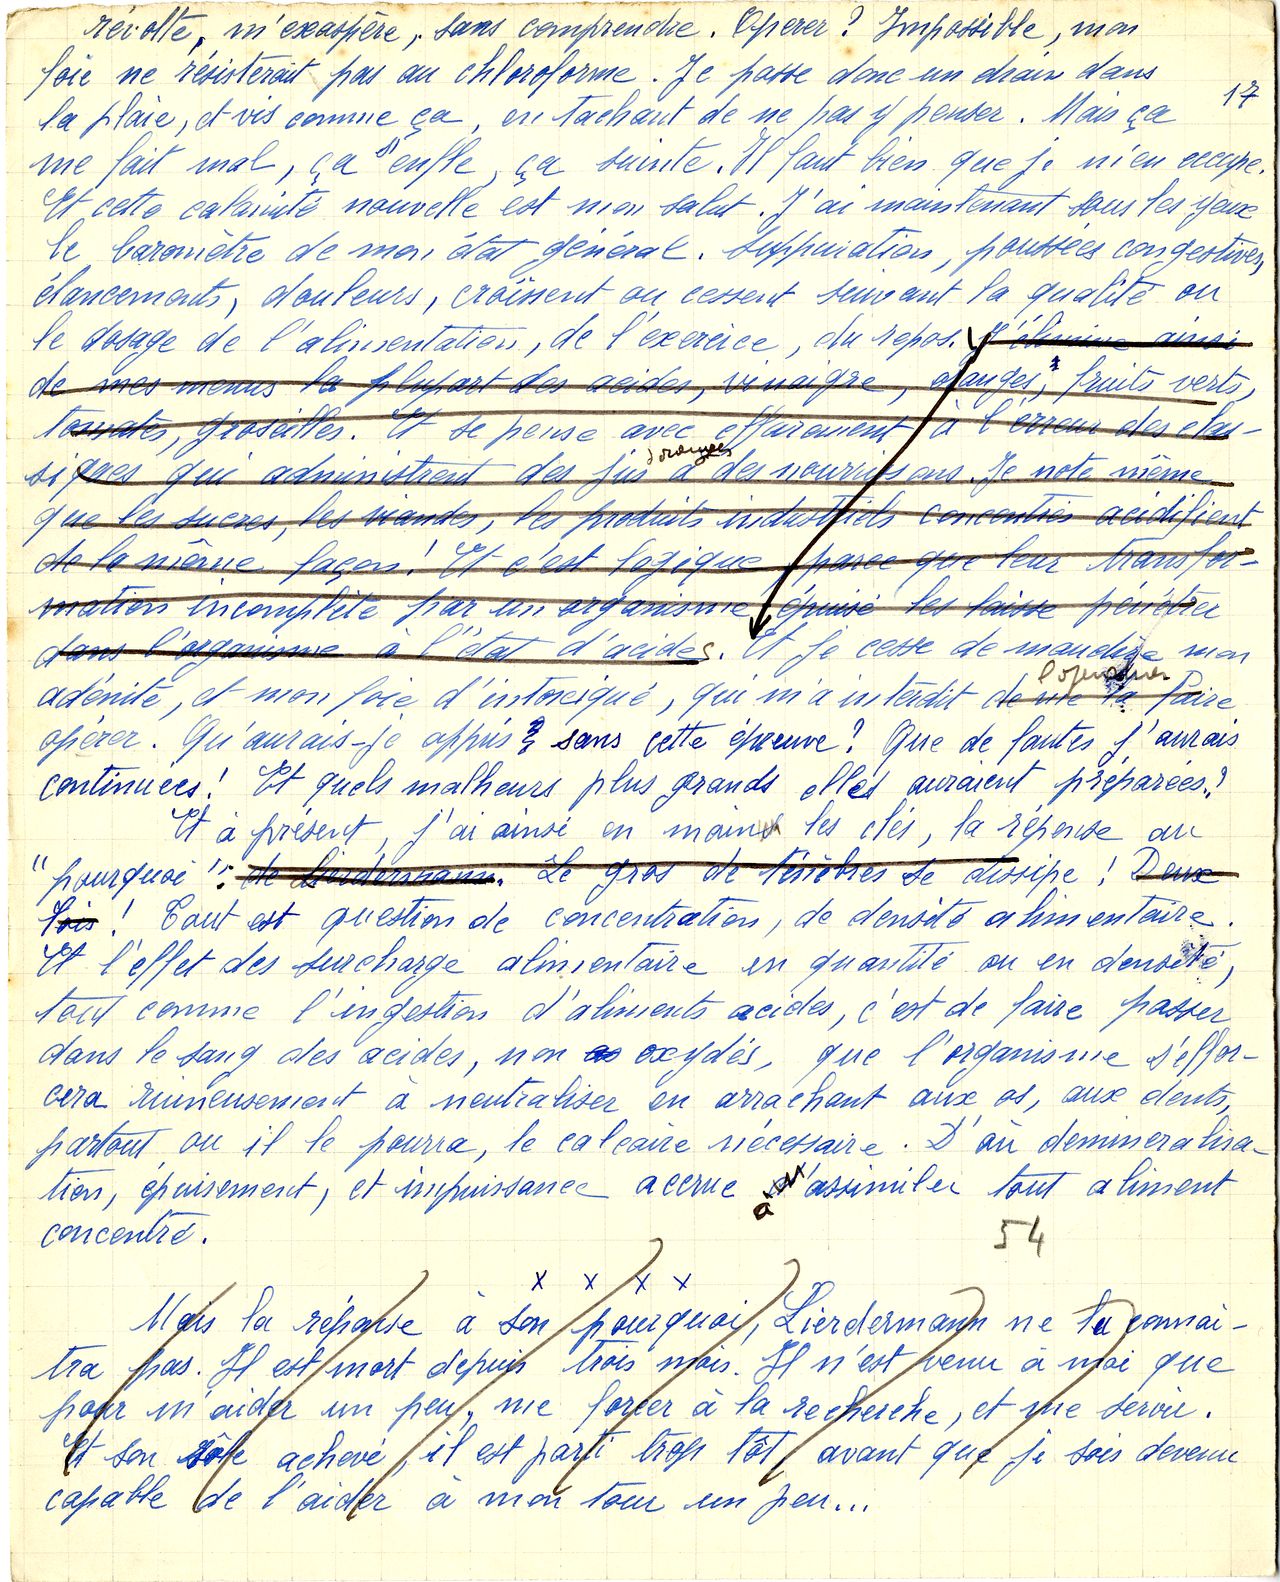 révolte, m'exaspère, sans comprendre. Opérer ? Impossible, mon
foie ne résisterait pas au chloroforme. Je passe donc un drain dans
17
la plaie, et vis comme ça, en tachant de ne pas y penser. Mais ça
me fait mal, ça enfle, ça suinte. Il faut bien que je m'en occupe.
Et cette calamité nouvelle est mon salut. J'ai maintenant sous les yeux
le baromètre de mon état général. Suppuration, poussées congestives,
élancements, douleurs, croissent ou cessent suivant la qualité ou
le dosage de l'alimentation, de l'exercice, du repos. J'élimine ainsi
de mes menus la plupart des acides, vinaigre, oranges, fruits verts,
tomates, groseilles. Et je pense avec effarement à l'erreur des clas-
siques qui administrent des jus d'oranges à des nourrissons. Je note même
que les sucres, les viandes, les produits industriels concentrés acidifient
de la même façon ! Et c'est logique parce que leur transfor-
mation incomplète par un organisme épuisé les laisse pénétrer
dans l'organisme à l'état d'acides. Et je cesse de maudire mon
adénite, et mon foie d'intoxiqué, qui m'a interdit de me la faire
opérer. Qu'aurais-je appris sans cette épreuve ? Que de fautes j'aurais
continuées ! Et quels malheurs plus grands elles auraient préparées !
Et à présent, j'ai ainsi en main les clés, la réponse au
"pourquoi" : de Lierdermann. Le gros de ténèbres se dissipe ! Deux
lois ! Tout est question de concentration, de densité alimentaire.
Et l'effet des surcharge alimentaire en quantité ou en densité,
tout comme l'ingestion d'aliments acides, c'est de faire passer
dans le sang des acides, non oxydés, que l'organisme s'effor-
cera ruineusement à neutraliser en arrachant aux os, aux dents,
partout ou il le pourra, le calcaire nécessaire. D'où demineralisa-
tion, épuisement, et impuissance accrue à assimiler tout aliment
concentré.
54
x x x x
Mais la réponse à son pourquoi, Lierdermann ne la connai-
tra pas. Il est mort depuis trois mois. Il n'est venu à moi que
pour m'aider un peu, me forcer à la recherche, et me servir.
Et son rôle achevé, il est parti trop tôt, avant que je sois devenu
capable de l'aider à mon tour un peu...